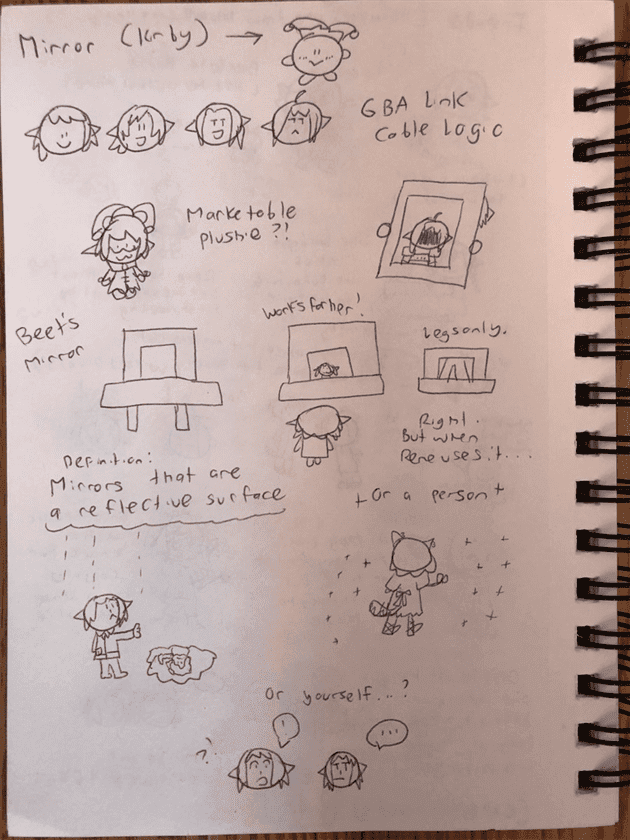 Mirror (Kirby) →
GBA Link
Cable Logic
Marketable
plushie?!
Beet's
Mirror
Works for her!
Legs only.
Right.
But when
Rene uses it...
Definition:
Mirrors that are
a reflective surface
+ Or a person +
Or yourself...?
?!
!
...